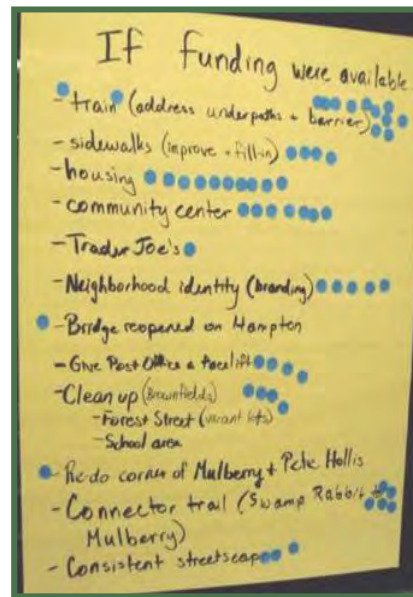 If funding were available
- train (address underpaths + barrier)
- sidewalks (improve + fill-in)
- housing
- community center
- Trader Joe's
- Neighborhood identity (branding)
- Bridge reopened on Hampton
- Give Post Office a facelift
- Clean up (Brownfields)
- Forest Street (vacant lots)
- School area
- Re-do corner of Mulberry + Pete Hollis
- Connector trail (Swamp Rabbit to
Mulberry)
- Consistent streetscape